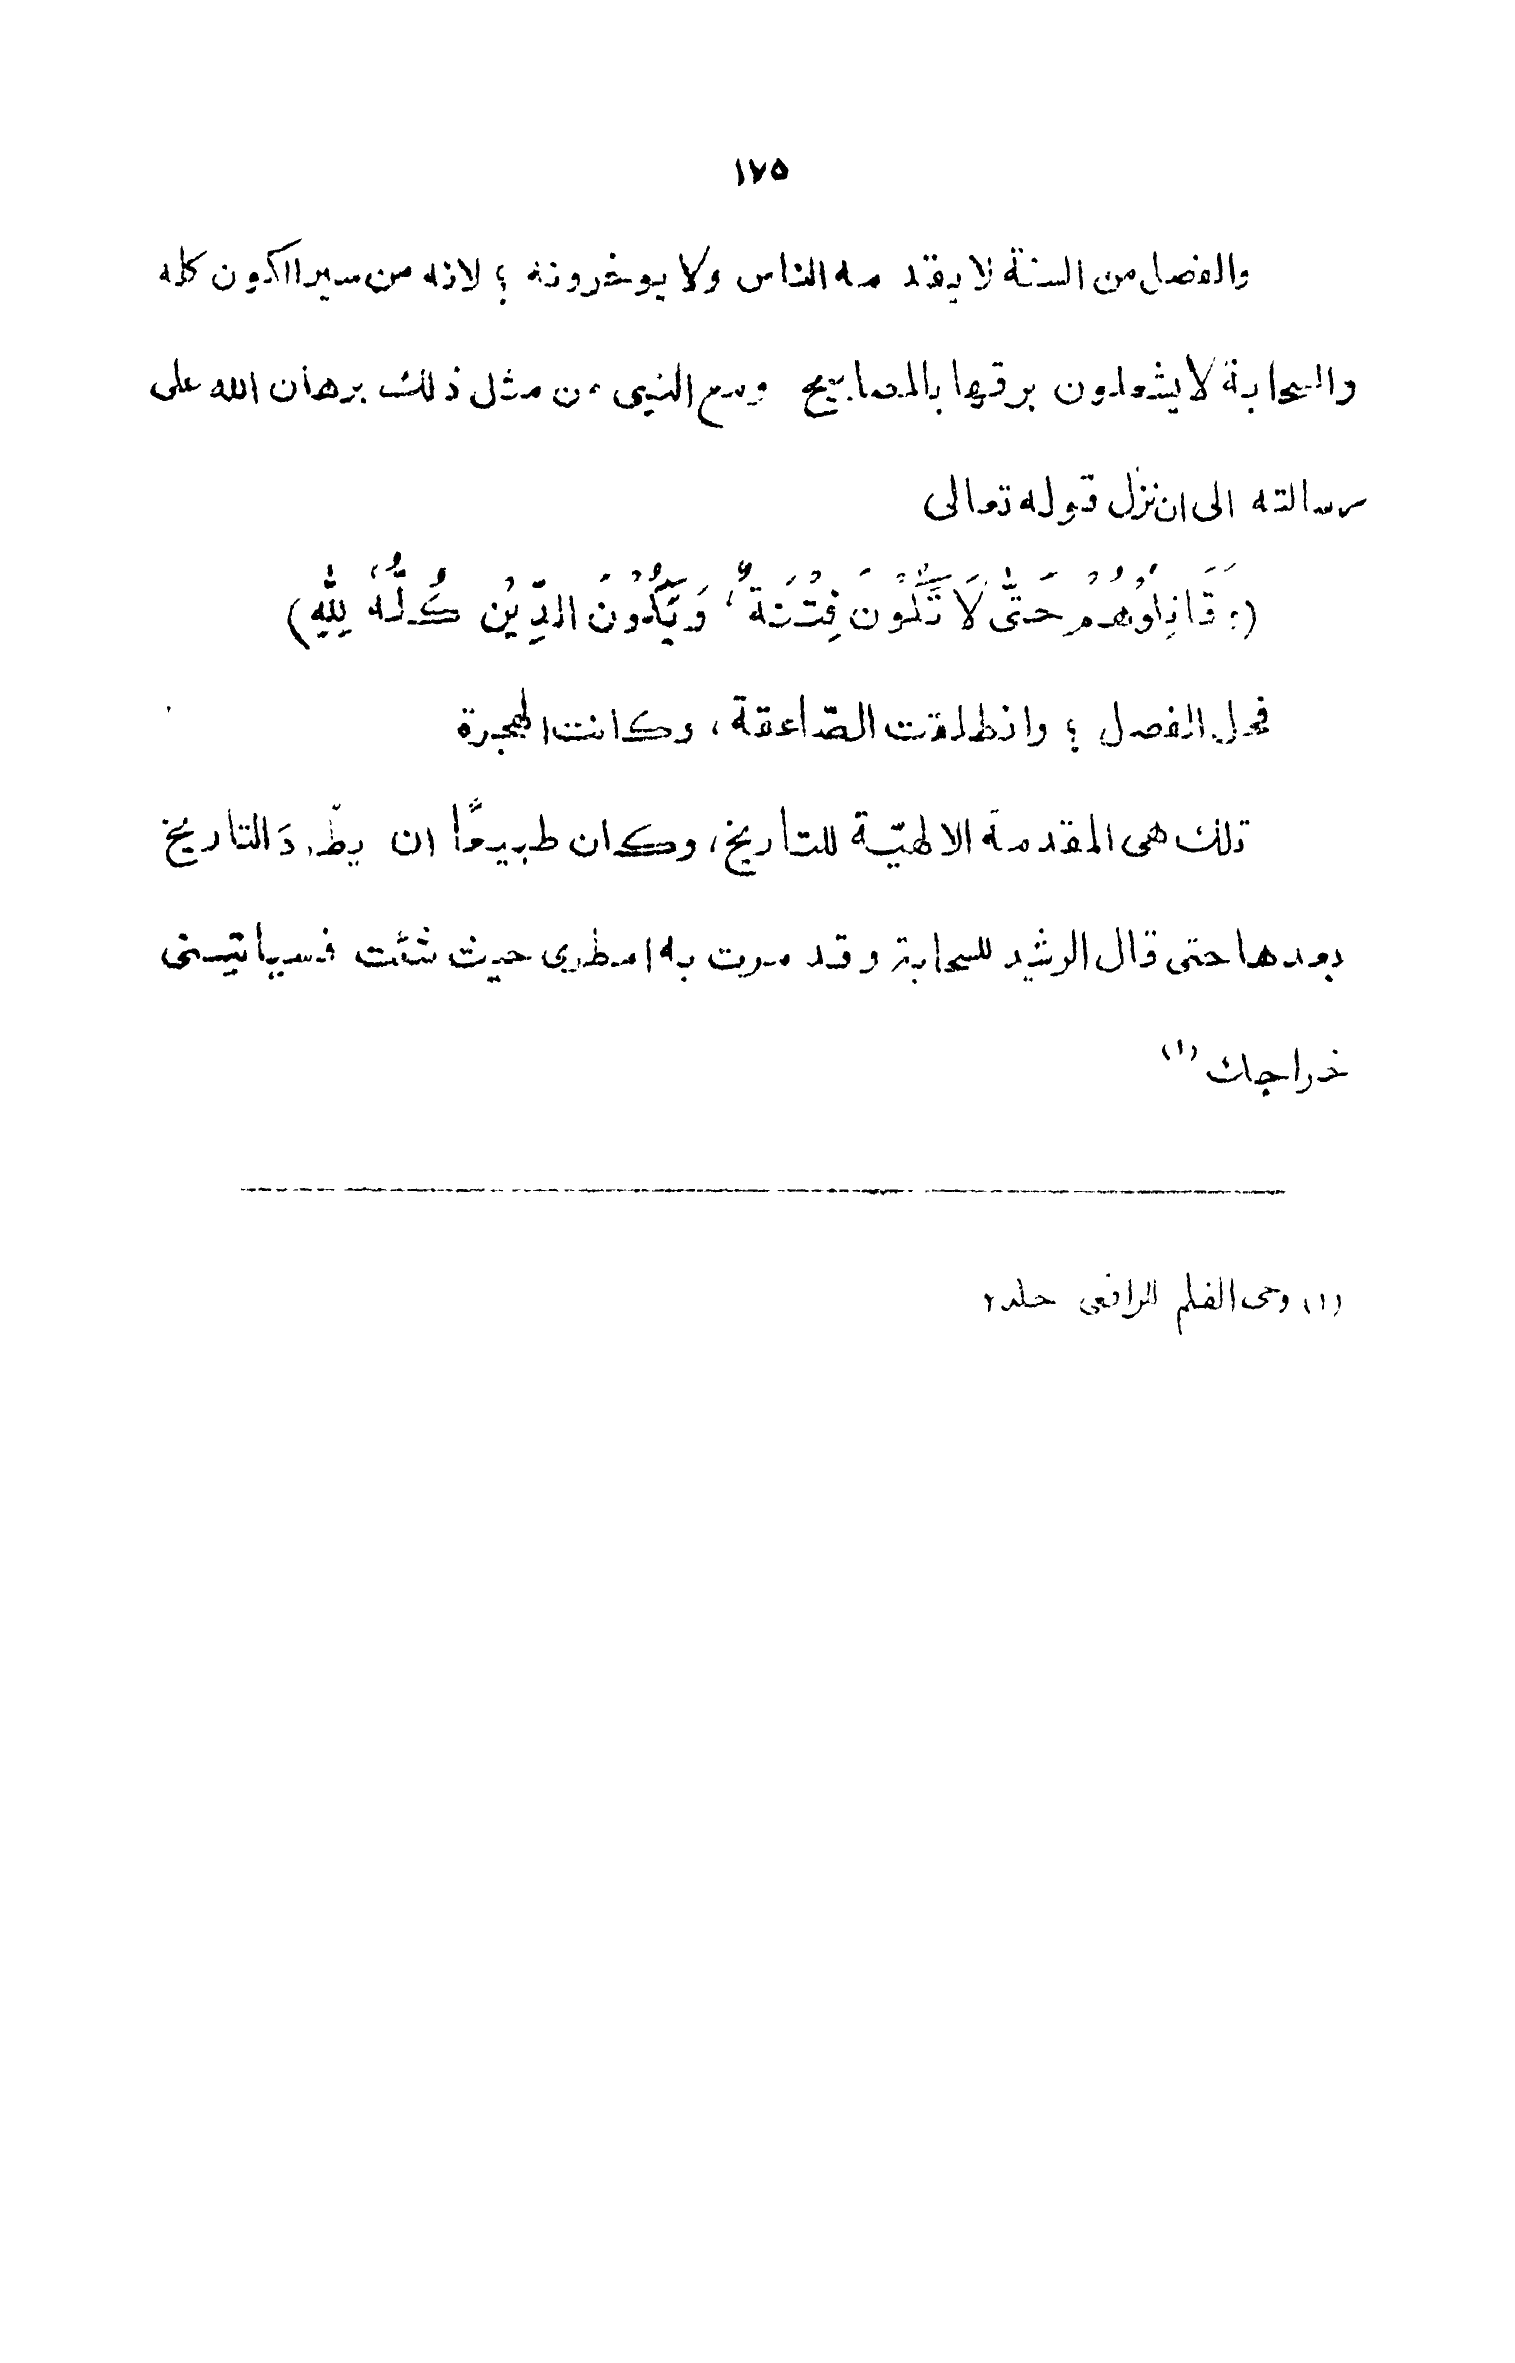 ١٧٥
والفصل من السنة لا يقدمه الناس ولا يوخرونه ؛ لانه من سير الكون كله
والسحابة لا يشعلون برقها بالمصابيح ومع النبى من مثل ذلك برهان الله على
رسالته الى ان نزل قوله تعالى
(وَقَاتِلُوْهُمْ حَتّٰى لَا تَكُوْنَ فِتْنَةٌ ، وَيَكُوْنَ الدِّيْنُ كُلُّهُ، لِلّٰهِ)
فحل الفصل ؛ وانطلقت الصّاعقة ، وكانت الهجرة
تلك هى المقدمة الالهيّة للتاريخ ، وكان طبيعيًّا ان يطّردَ التاريخ
بعدها حتى قال الرشيد للسحابة وقد مرت به امطرى حيث شئت فسياتينى
خراجك (١)
(١) وحى القلم للرافعى جلد ٢